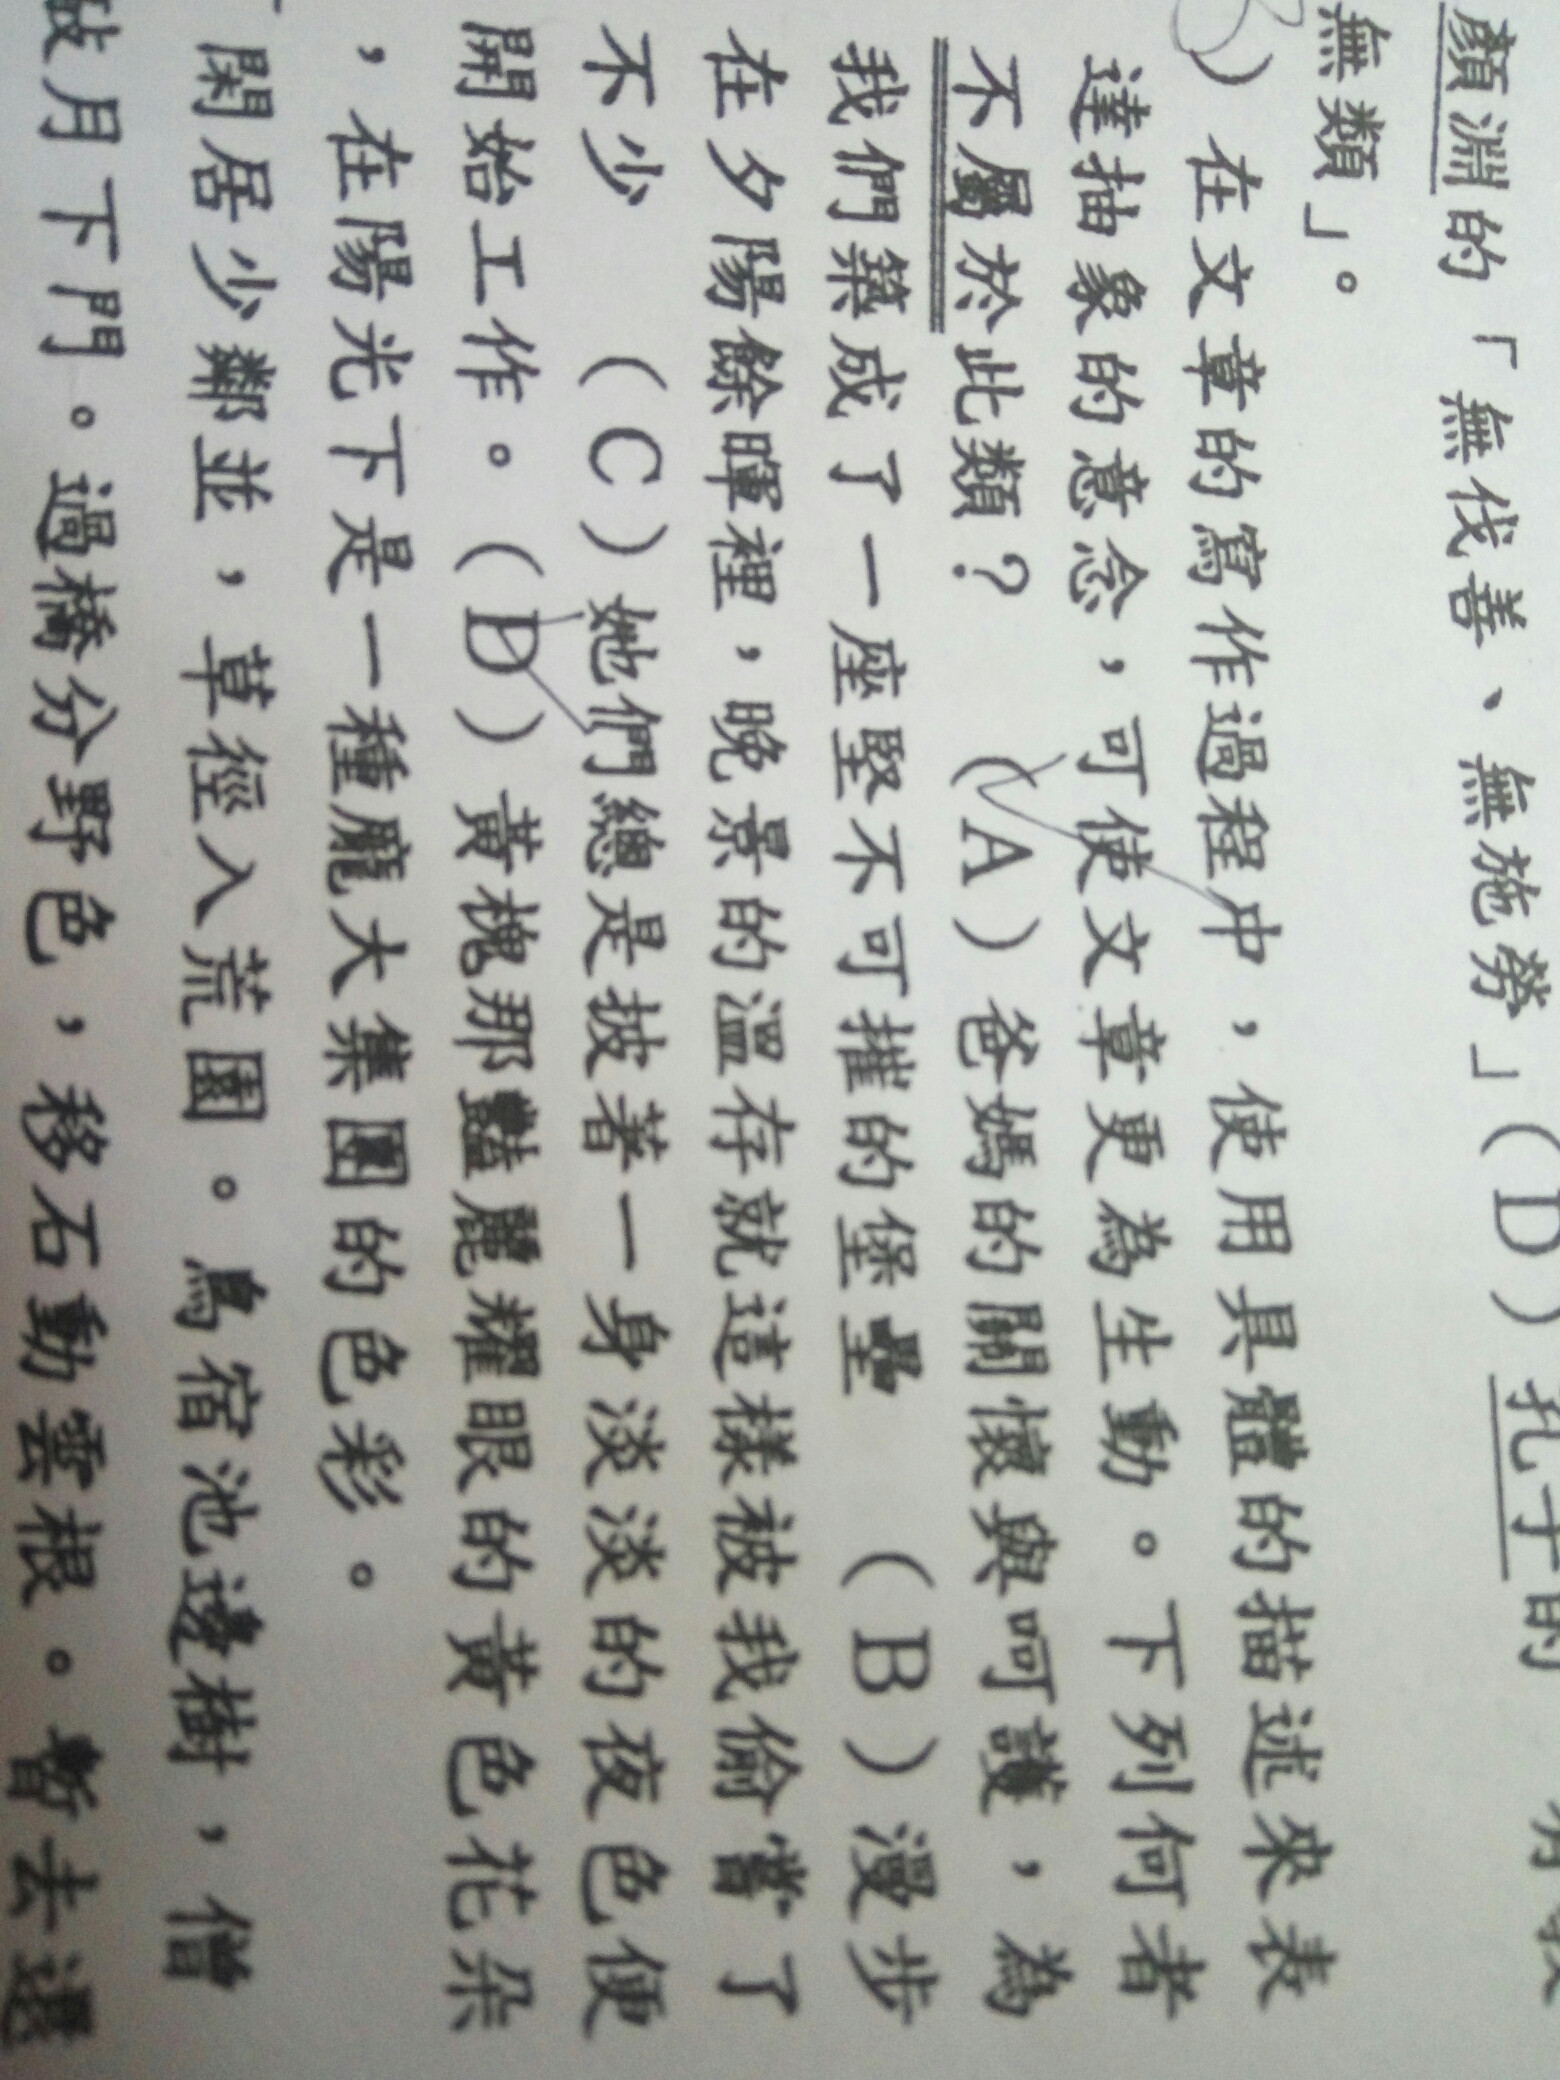 顏淵的「無伐善、無施勞」(D)孔子的
無類」。
)在文章的寫作過程中，使用具體的描述來表
達抽象的意念，可使文章更為生動。下列何者
不屬於此類？ (A)爸媽的關懷與呵護，為
我們築成了一座堅不可摧的堡壘 (B)漫步
在夕陽餘暉裡，晚景的溫存就這樣被我偷嘗了
不少 (C)她們總是披著一身淡淡的夜色便
開始工作。(D)黃槐那豔麗耀眼的黃色花朵
，在陽光下是一種龐大集團的色彩。
閑居少鄰並，草徑入荒園。鳥宿池邊樹，僧
敲月下門。過橋分野色，移石動雲根。暫去還